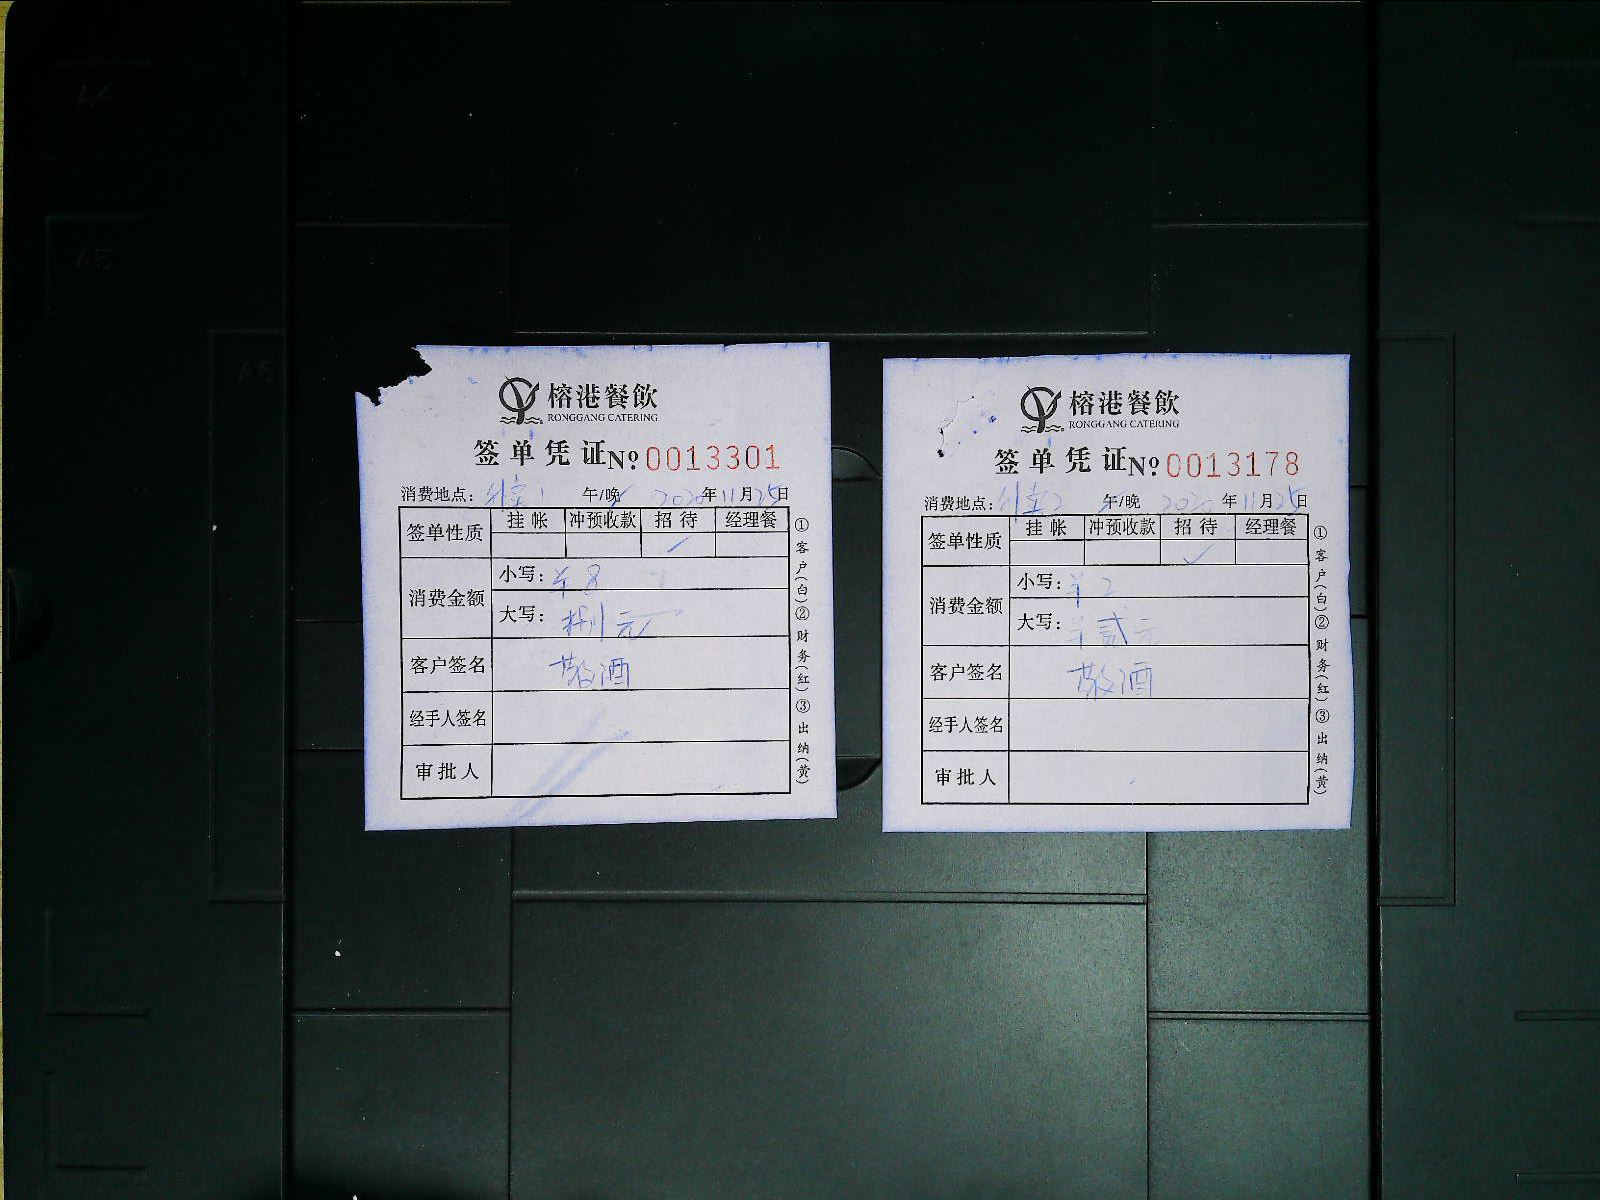 A4
A5
A5
榕港餐飲
RONGGANG CATERING
签单凭证№ 0013301
消费地点：外卖1 午/晚 2020年11月25日
签单性质 挂帐 冲预收款 招待 经理餐
✓
消费金额 小写：¥8
大写：捌元
客户签名 敬酒
经手人签名
审批人
①客户(白)②财务(红)③出纳(黄)
榕港餐飲
RONGGANG CATERING
签单凭证№ 0013178
消费地点：外卖2 午/晚 2020年11月25日
签单性质 挂帐 冲预收款 招待 经理餐
✓
消费金额 小写：¥2
大写：¥贰元
客户签名 敬酒
经手人签名
审批人
①客户(白)②财务(红)③出纳(黄)